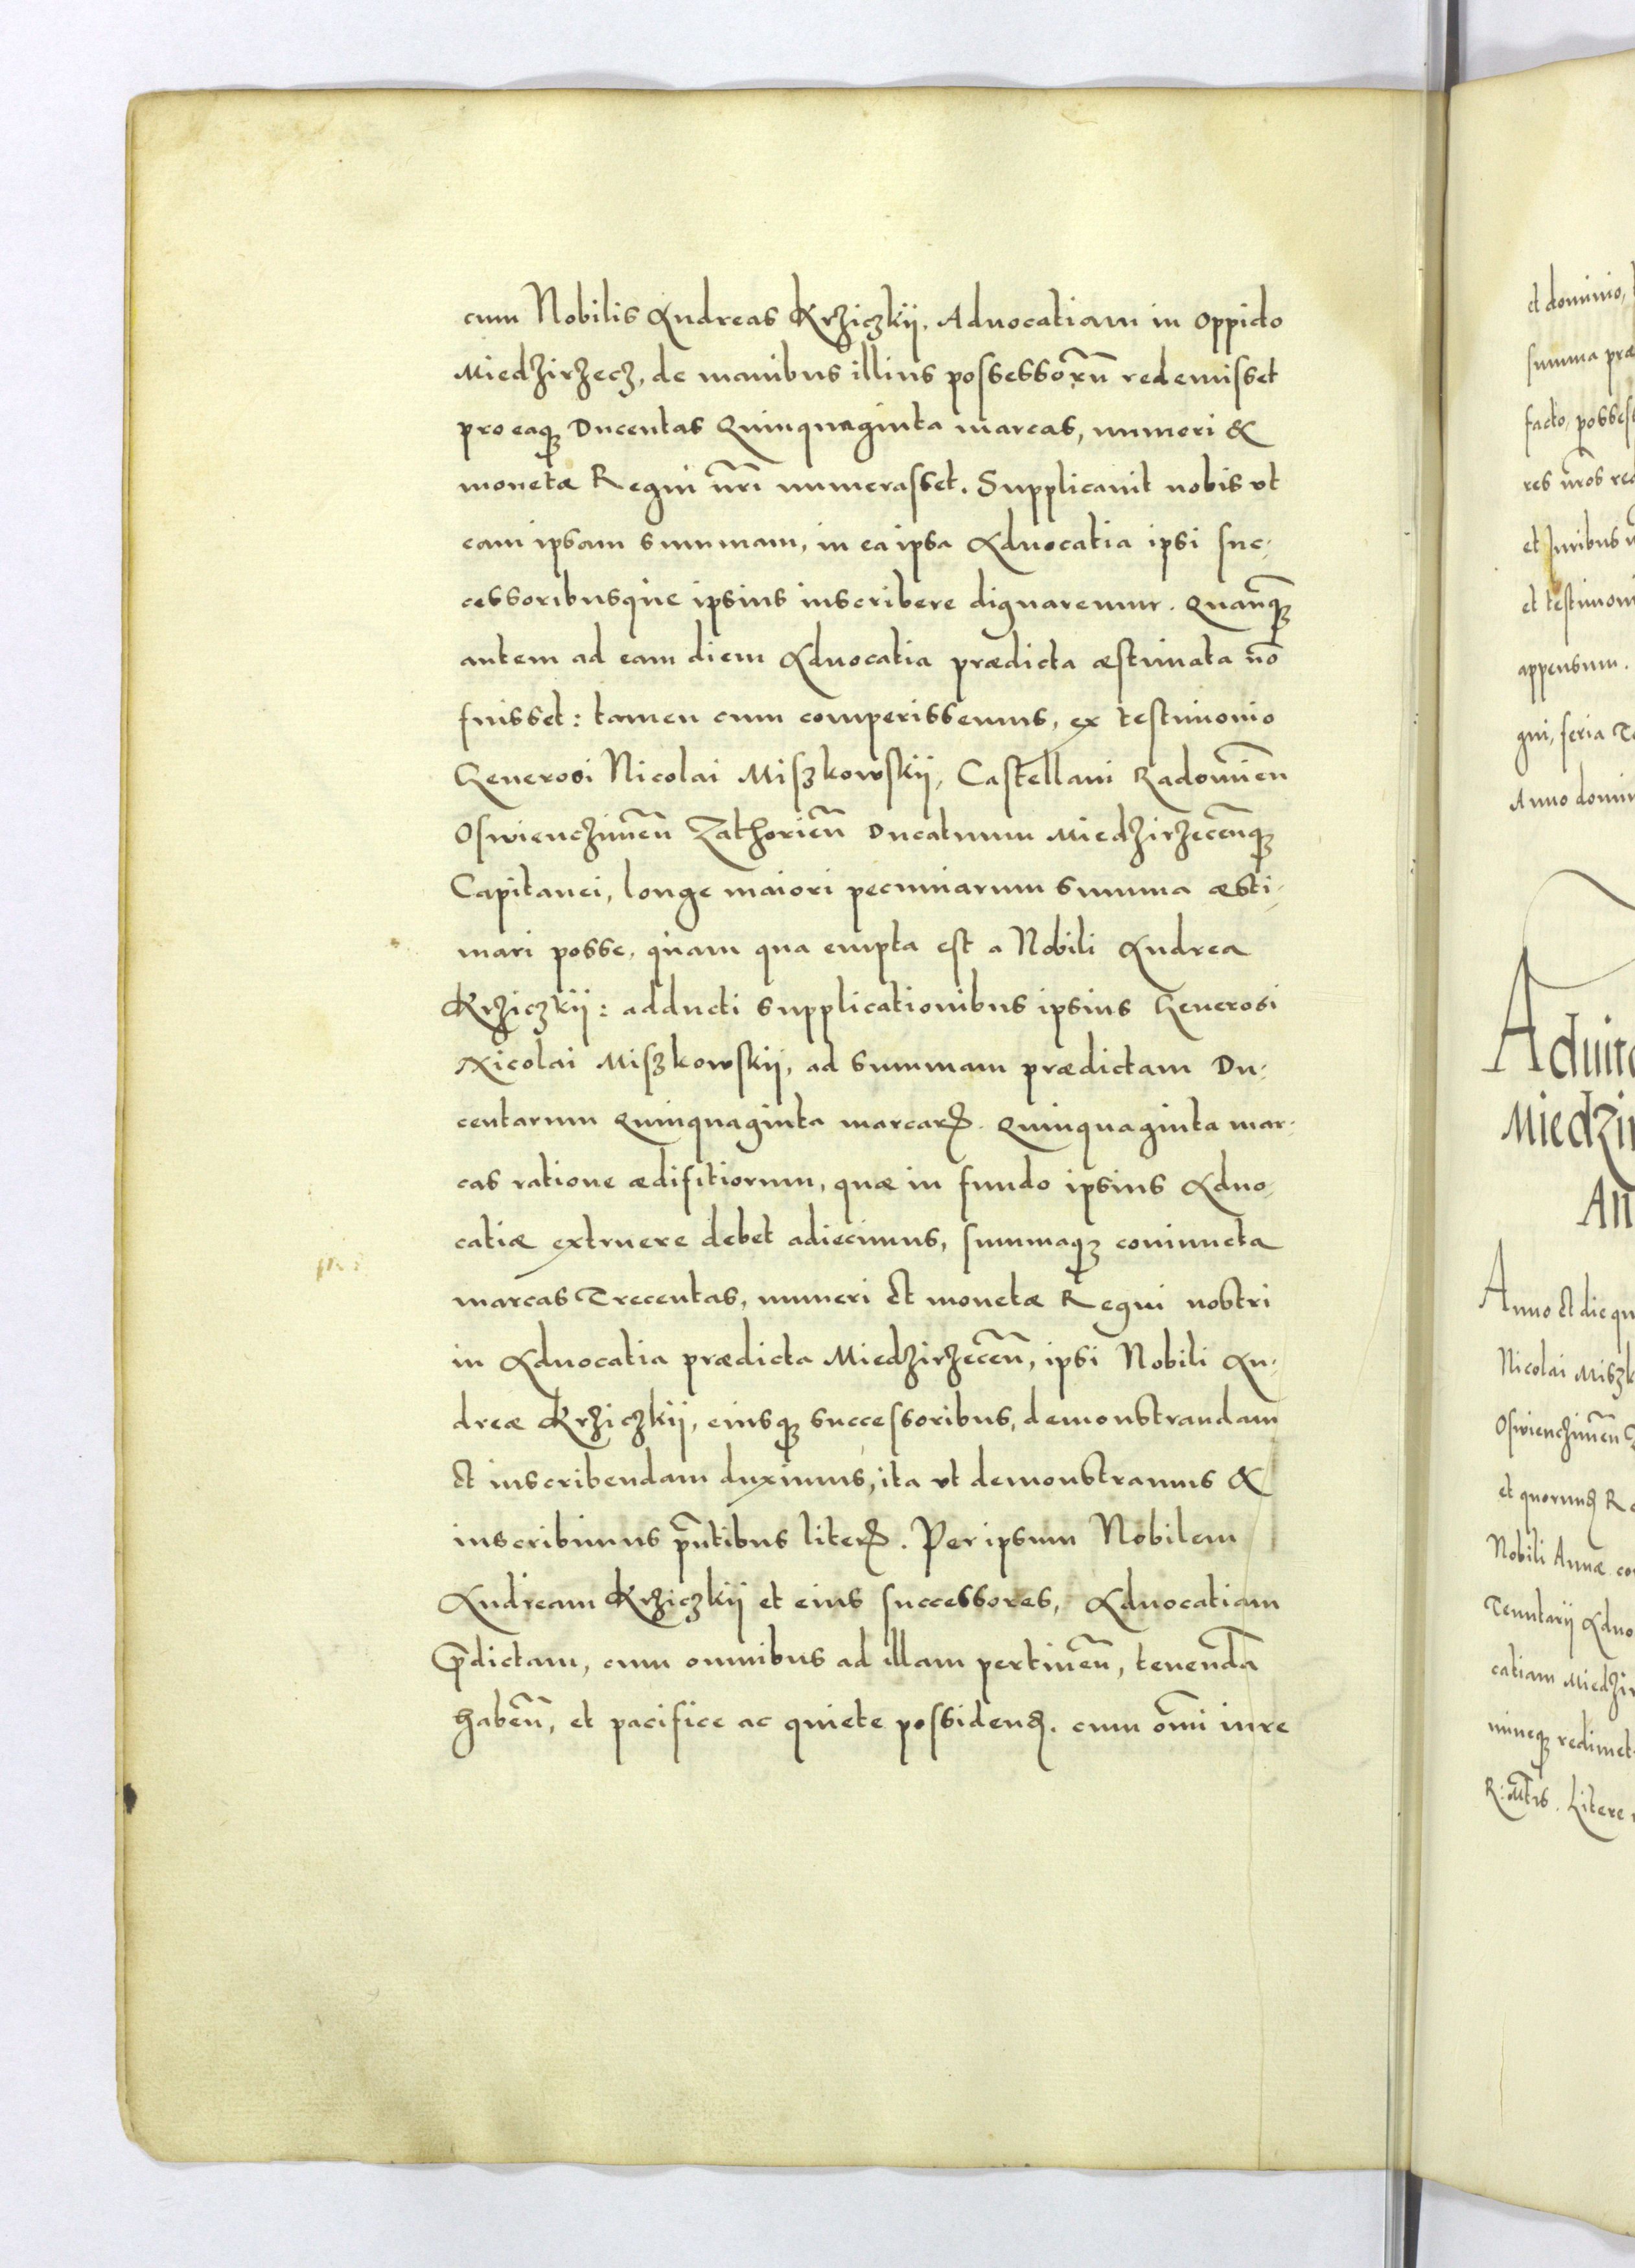 cum Nobilis Andreas Krziczkij, Advocatiam in oppido
Miedzirzecz, de manibus illius possessorũ redemisset
pro eaqꝫ Ducentas Quinquaginta marcas, numeri &
monetæ Regni nr̃i numerasset. Supplicauit nobis vt
eam ipsam summam, in ea ipsa Aduocatia ipsi suc-
cessoribusque ipsius inscribere dignaremur. Quanqꝫ
autem ad eam diem Aduocatia prædicta æstimata nõ
fuisset: tamen cum comperissemus, ex testimonio
Generosi Nicolai Miszkowskij, Castellani Radomieñ
Oswienczimeñ Zathorieñ Ducatuum Miedzirzeceñqꝫ
Capitanei, longe maiori pecuniarum summa æsti-
mari posse, quam qua empta est a Nobili Andrea
Krziczkij: adducti supplicationibus ipsius Generosi
Nicolai Miszkowskij, ad summam prædictam Du-
centarum Quinquaginta marcarꝝ. Quinquaginta mar-
cas ratione ædifitiorum, quæ in fundo ipsius Aduo-
catiæ extruere debet adiecimus, summaqꝫ coniuncta
marcas Trecentas, numeri et monetæ Regni nostri
in Aduocatia prædicta Miedzirzeceñ, ipsi Nobili An-
dreæ Krziczkij, eiusqꝫ successoribus, demonstrandam
et inscribendam duximus, ita vt demonstramus &
inscribimus pñtibus literꝝ. Per ipsum Nobilem
Andream Krziczkij et eius successores, Aduocatiam
p̃dictam, cum omnibus ad illam pertineñ, tenendã
habeñ, et pacifice ac quiete possidenꝝ. cum om̃i iure
et dominio,
summa præ
facto, possess
res nr̃os
et Iuribus
et testimoni
appensum.
gni, feria
Anno domin
Advit
Miedzir
An
Anno et die qu
Nicolai Miszk
Oswienczimeñ
et quorunꝝ
Nobili Annæ co
Tenutarij Aduo
catiam Miedzir
mineqꝫ redimet
R: Mt̃is. Litere